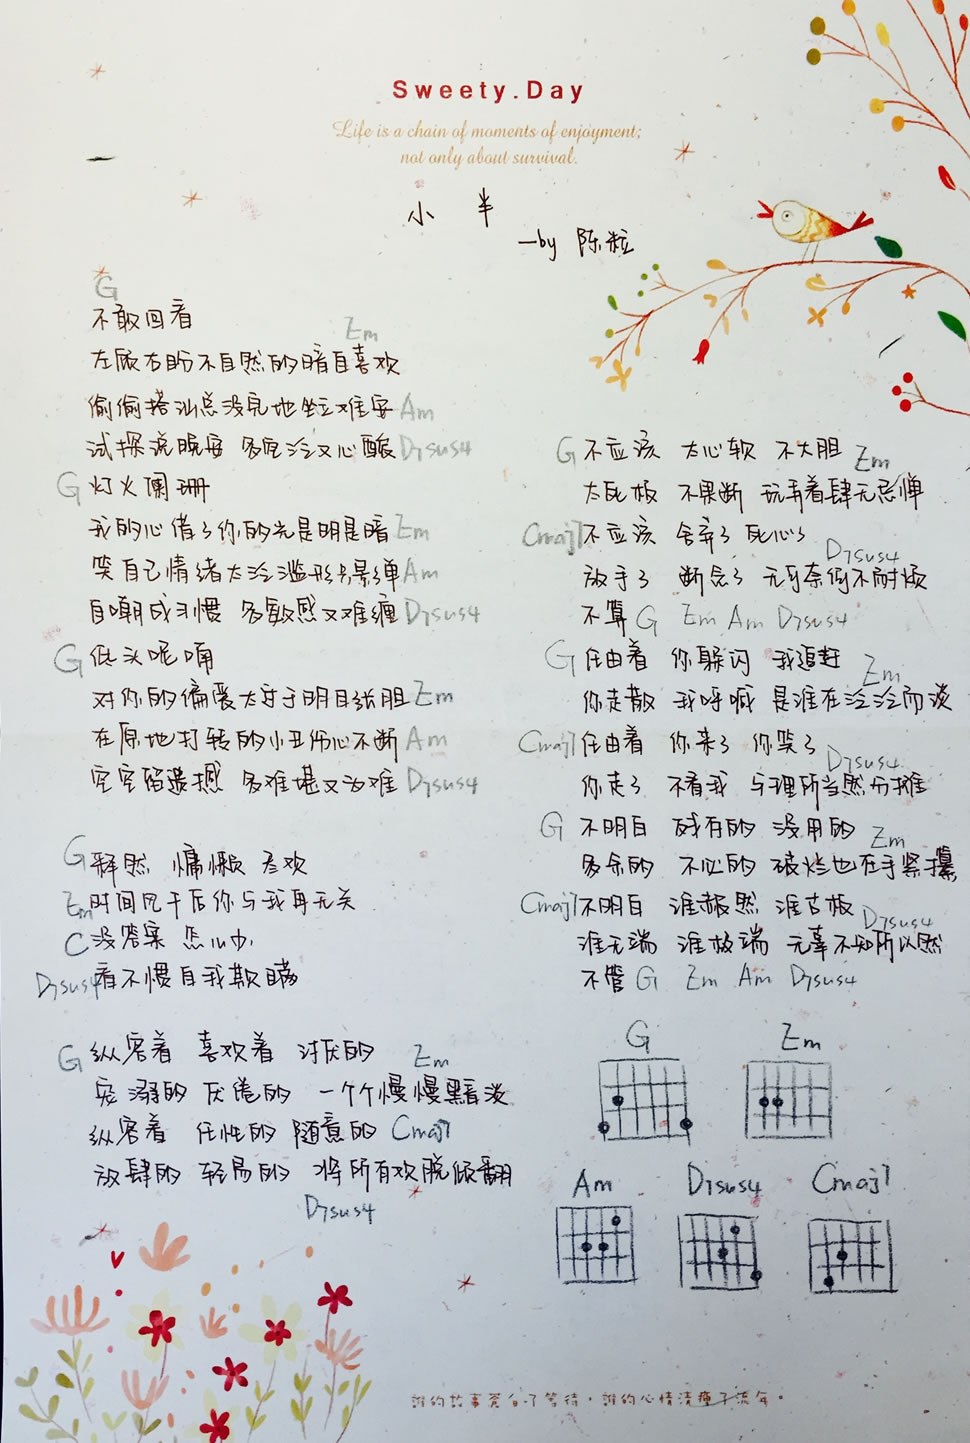 Sweety.Day
Life is a chain of moments of enjoyment;
not only about survival.
小 半
—by 陈粒
G
不敢回看
Em
左顾右盼不自然的暗自喜欢
偷偷搭讪总没完地坐立难安 Am
试探说晚安 多空泛又心酸 D7sus4
G 灯火阑珊
我的心借了你的光是明是暗 Em
笑自己情绪太泛滥形只影单 Am
自嘲成习惯 多敏感又难缠 D7sus4
G 低头呢喃
对你的偏爱太过于明目张胆 Em
在原地打转的小丑伤心不断 Am
空空留遗憾 多难堪又为难 D7sus4
G 释然 慵懒 尽欢
Em 时间风干后你与我再无关
C 没答案 怎么办
D7sus4 看不惯自我欺瞒
G 纵容着 喜欢着 讨厌的 Em
宠溺的 厌倦的 一个个慢慢黯淡
纵容着 任性的 随意的 Cmaj7
放肆的 轻易的 将所有欢脱倾翻
D7sus4
G 不应该 太心软 不大胆 Em
太死板 不果断 玩弄着肆无忌惮
Cmaj7 不应该 舍弃了 死心了 D7sus4
放手了 断念了 无可奈何不耐烦
不算 G Em Am D7sus4
G 任由着 你躲闪 我追赶 Em
你走散 我呼喊 是谁在泛泛而谈
Cmaj7 任由着 你来了 你笑了 D7sus4
你走了 不看我 与理所当然分摊
G 不明白 残存的 没用的 Em
多余的 不必的 破烂也在手紧攥
Cmaj7 不明白 谁赧然 谁古板 D7sus4
谁无端 谁极端 无辜不知所以然
不管 G Em Am D7sus4
G Em
Am D7sus4 Cmaj7